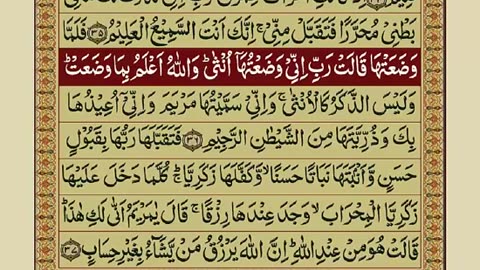 بَطْنِیْ مُحَرَّرًا فَتَقَبَّلْ مِنِّیْ ۚ اِنَّكَ اَنْتَ السَّمِیْعُ الْعَلِیْمُ ﴿۳۵﴾ فَلَمَّا
وَضَعَتْهَا قَالَتْ رَبِّ اِنِّیْ وَضَعْتُهَاۤ اُنْثٰی ؕ وَاللّٰهُ اَعْلَمُ بِمَا وَضَعَتْ ؕ
وَلَیْسَ الذَّكَرُ كَالْاُنْثٰی ۚ وَاِنِّیْ سَمَّیْتُهَا مَرْیَمَ وَاِنِّیْۤ اُعِیْذُهَا
بِكَ وَذُرِّیَّتَهَا مِنَ الشَّیْطٰنِ الرَّجِیْمِ ﴿۳۶﴾ فَتَقَبَّلَهَا رَبُّهَا بِقَبُوْلٍ
حَسَنٍ وَّاَنْۢبَتَهَا نَبَاتًا حَسَنًا ۙ وَّكَفَّلَهَا زَكَرِیَّا ؕ كُلَّمَا دَخَلَ عَلَیْهَا
زَكَرِیَّا الْمِحْرَابَ ۙ وَجَدَ عِنْدَهَا رِزْقًا ۚ قَالَ یٰمَرْیَمُ اَنّٰی لَكِ هٰذَا ؕ
قَالَتْ هُوَ مِنْ عِنْدِ اللّٰهِ ؕ اِنَّ اللّٰهَ یَرْزُقُ مَنْ یَّشَآءُ بِغَیْرِ حِسَابٍ ﴿۳۷﴾